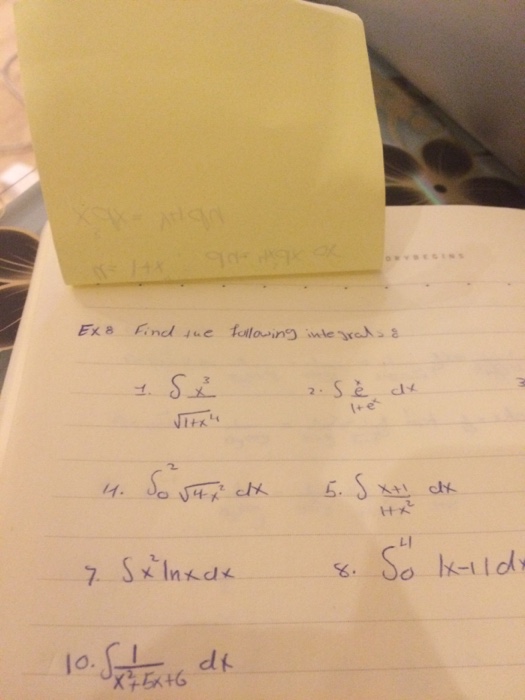 DRYBEGINS
Ex 8 Find the following integrals 8
1. ∫ x³ / √1+x⁴
2. ∫ eˣ / 1+eˣ dx
3
4. ∫₀² √4-x² dx
5. ∫ x+1 / 1+x² dx
7. ∫x² lnx dx
8. ∫₀⁴ |x-1| dx
10. ∫ 1 / x²+5x+6 dx